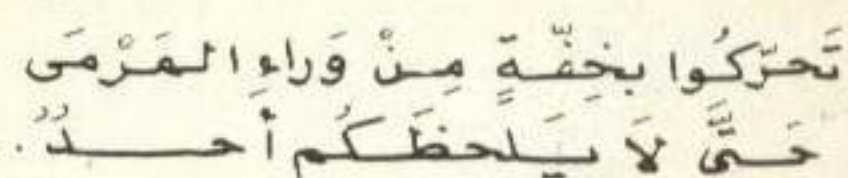 تَحرّكُوا بخِفّةٍ مِنْ وَراءِ المَرْمَى
حَتَّى لَا يَلحظَكُم أحدٌ.